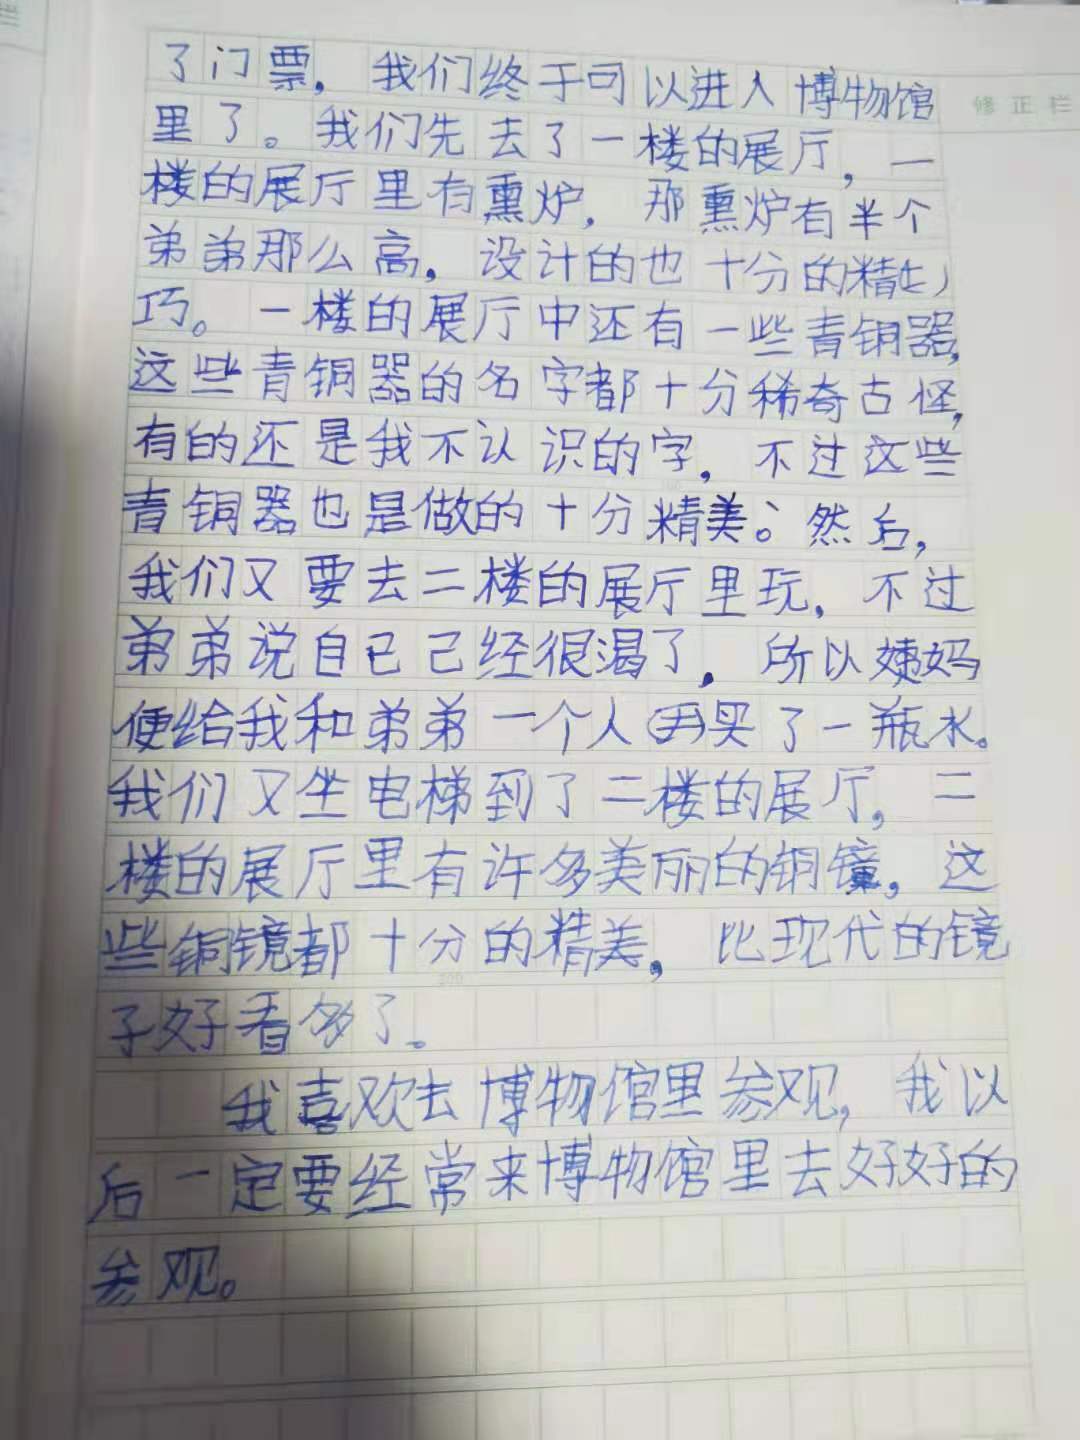 了门票，我们终于可以进入博物馆
修正栏
里了。我们先去了一楼的展厅，一
楼的展厅里有熏炉，那熏炉有半个
弟弟那么高，设计的也十分的精
巧。一楼的展厅中还有一些青铜器，
这些青铜器的名字都十分稀奇古怪，
有的还是我不认识的字，不过这些
青铜器也是做的十分精美。然后，
我们又要去二楼的展厅里玩，不过
弟弟说自己已经很渴了，所以姨妈
便给我和弟弟一个人买了一瓶水。
我们又坐电梯到了二楼的展厅，二
楼的展厅里有许多美丽的铜镜，这
些铜镜都十分的精美，比现代的镜
子好看多了。
我喜欢去博物馆里参观，我以
后一定要经常来博物馆里去好好的
参观。